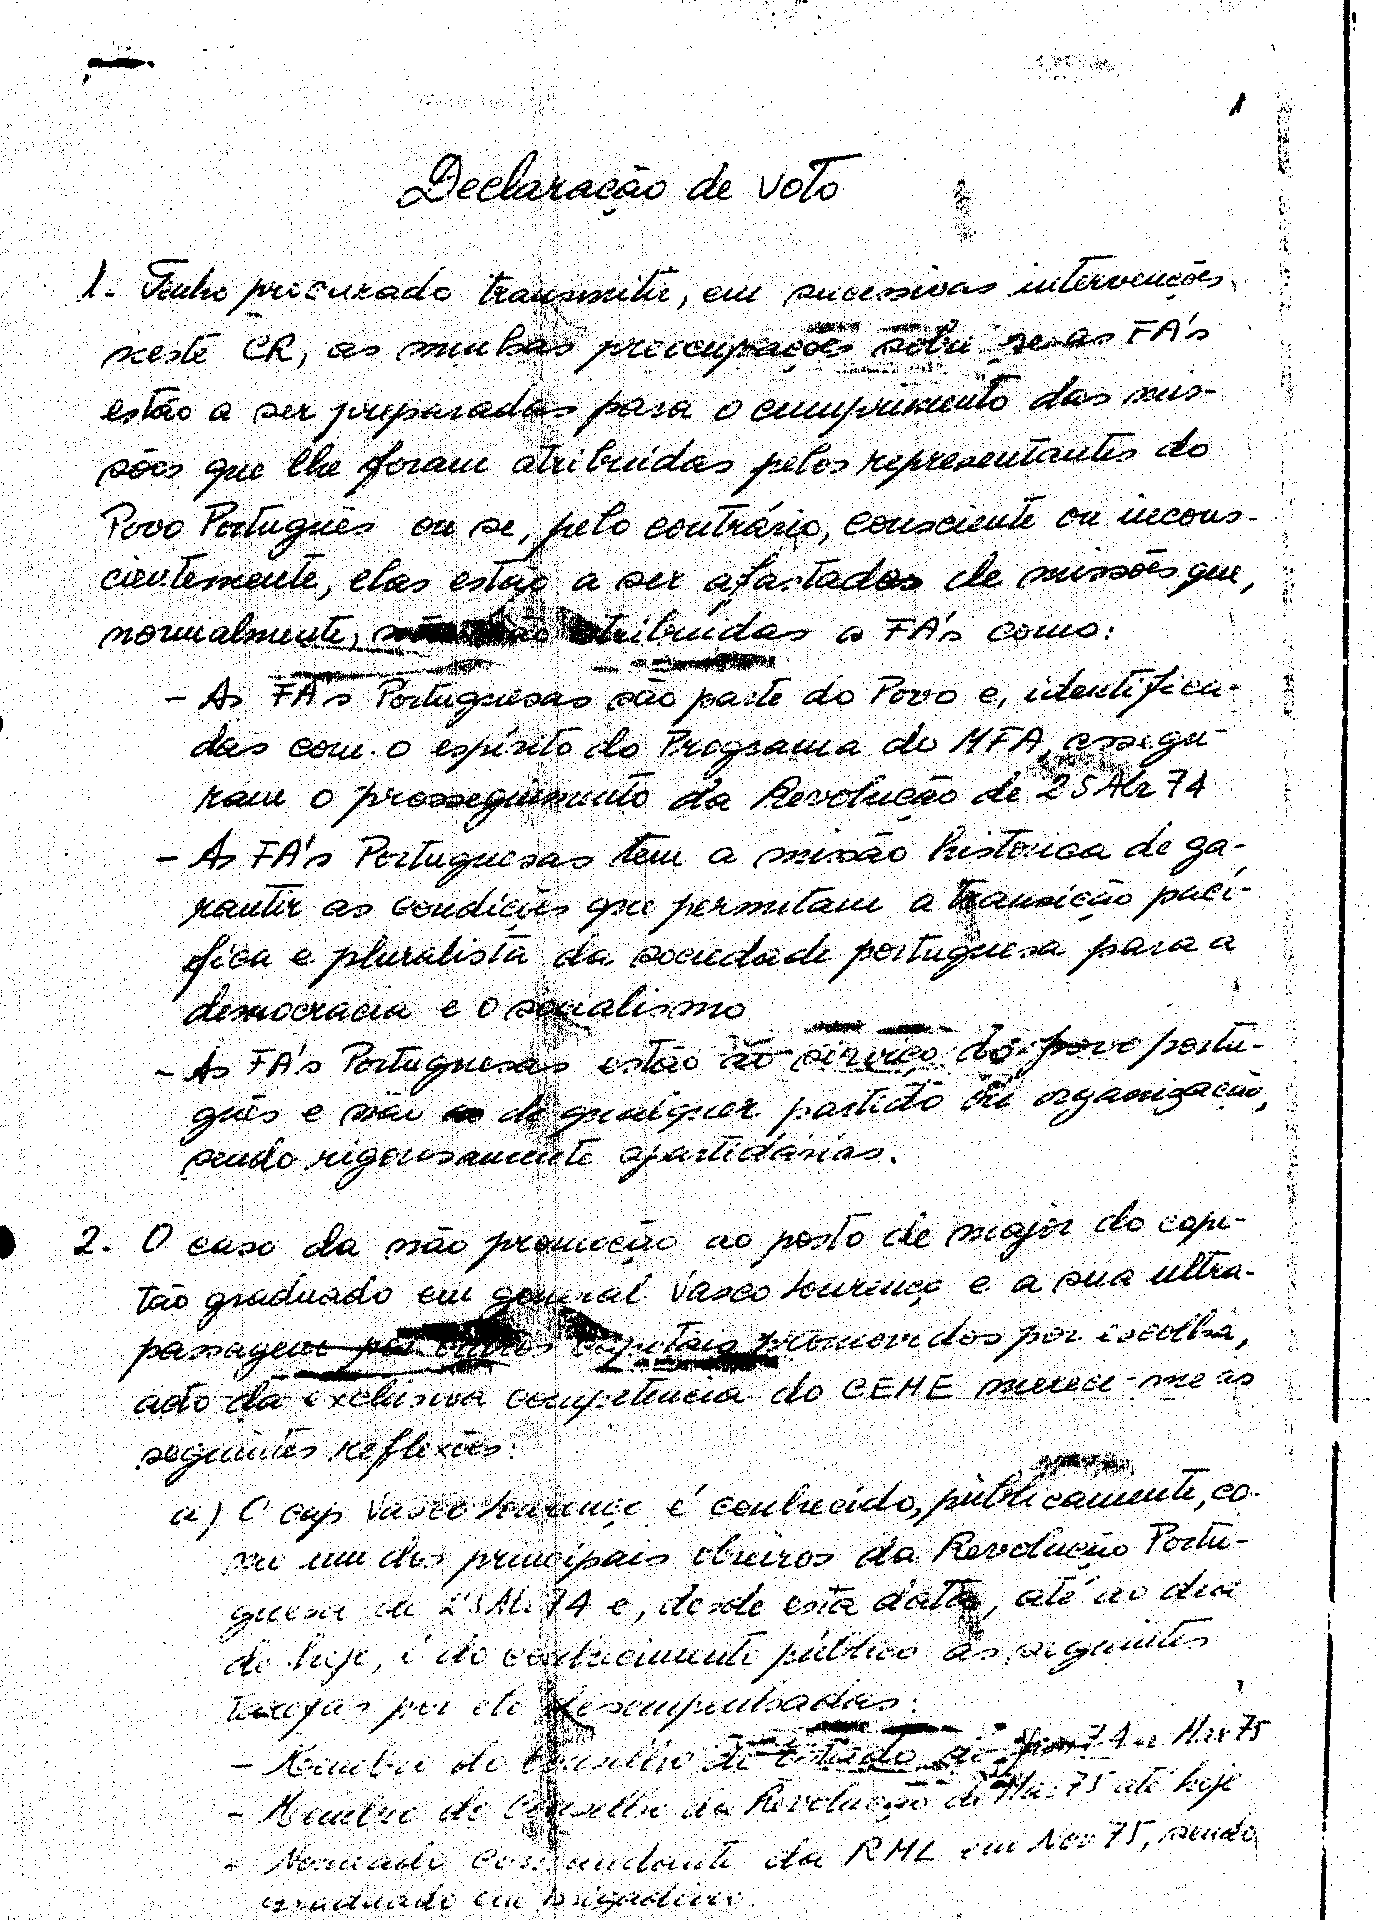 1
Declaração de voto
1. Tenho procurado transmitir, em sucessivas intervenções
neste CR, as minhas preocupações sobre se as FA's
estão a ser preparadas para o cumprimento das mis-
sões que lhe foram atribuídas pelos representantes do
Povo Português ou se, pelo contrário, consciente ou incons-
cientemente, elas estão a ser afastadas de missões que,
normalmente, são atribuídas a FA's como:
- As FA's Portuguesas são parte do Povo e, identifica-
das com o espírito do Programa do MFA, assegu-
ram o prosseguimento da Revolução de 25 Abr 74
- As FA's Portuguesas tem a missão histórica de ga-
rantir as condições que permitam a transição pací-
fica e pluralista da sociedade portuguesa para a
democracia e o socialismo
- As FA's Portuguesas estão ao serviço do povo portu-
guês e não de qualquer partido ou organização,
sendo rigorosamente apartidárias.
2. O caso da não promoção ao posto de major do capi-
tão graduado em general Vasco Lourenço e a sua ultra-
passagem por outros capitães promovidos por escolha,
acto da exclusiva competência do CEME merece-me as
seguintes reflexões:
a) O cap Vasco Lourenço é conhecido, publicamente, co-
mo um dos principais obreiros da Revolução Portu-
guesa de 25 Abr 74 e, desde esta data, até ao dia
de hoje, é do conhecimento público as seguintes
tarefas por ele desempenhadas:
- Membro do Conselho de Estado de 74 a Mar 75
- Membro do Conselho da Revolução de Mar 75 até hoje
- Nomeado comandante da RML em Nov 75, sendo
graduado em brigadeiro.